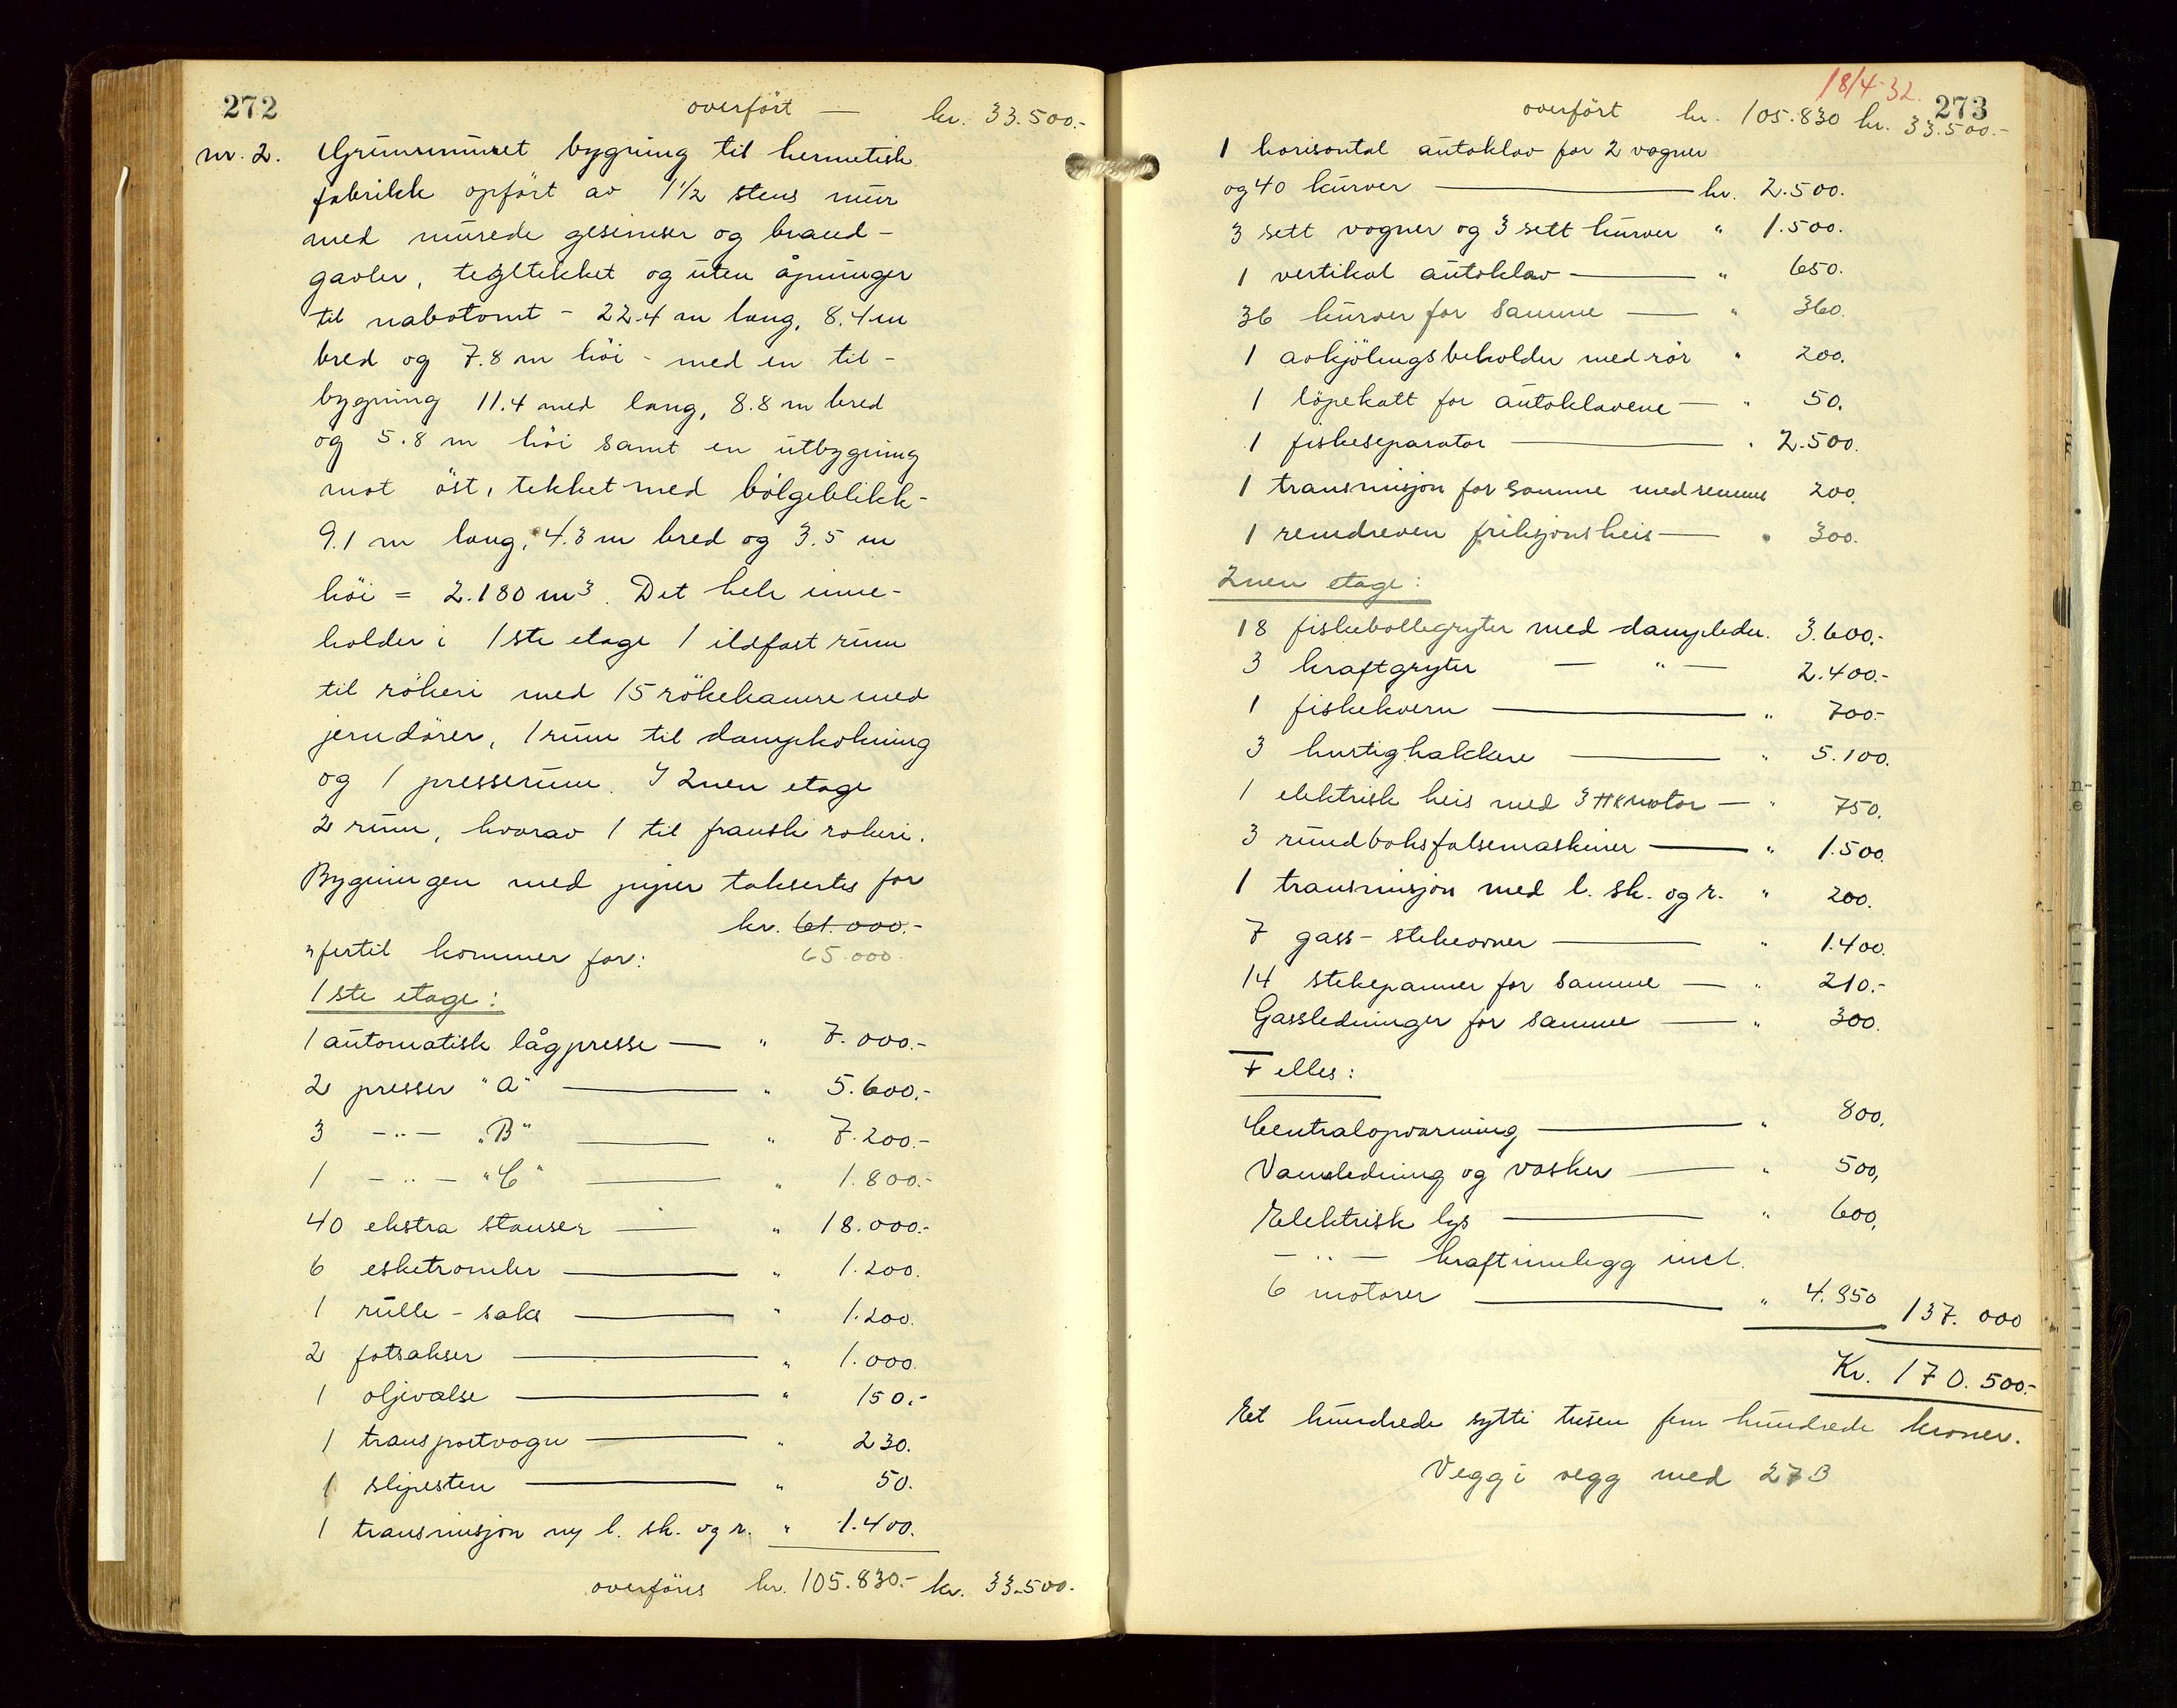 272
overført — kr. 33.500.-
nr. 2. Grunnmuret bygning til hermetisk
fabrikk opført av 1 1/2 stens mur
med murede gesimser og brand-
gavler, tegltekket og uten åpninger
til nabotomt - 22.4 m lang, 8.4 m
bred og 7.8 m höi - med en til-
bygning 11.4 med lang, 8.8 m bred
og 5.8 m höi samt en utbygning
mot öst, tekket med bölgeblikk-
9.1 m lang, 4.3 m bred og 3.5 m
höi = 2.180 m3. Det hele inne-
holder i 1ste etage 1 ildfast rum
til rökeri med 15 rökekamre med
jerndörer, 1 rum til dampkokning
og 1 presserum. I 2nen etage
2 rum, hvorav 1 til fransk rökeri.
Bygningen med piper takseres for
kr. 61.000.-
Hertil kommer for: 65.000.
1ste etage:
1 automatisk lågpresse — " 7.000.-
2 presser "A" — " 5.600.-
3 -"- "B" — " 7.200.-
1 -"- "C" — " 1.800.-
40 ekstra stanser — " 18.000.-
6 esketromler — " 1.200.
1 rulle-saks — " 1.200.
2 fotsakser — " 1.000.
1 oljevalse — " 150.-
1 transportvogn — " 230.
1 slipesten — " 50.
1 transmisjon m/ l. sk. og r. " 1.400.
overføris kr. 105.830.- kr. 33.500.-
18/4-32.
273
overført kr. 105.830 kr. 33.500.-
1 horisontal autoklav for 2 vogner
og 40 kurver — kr. 2.500.
3 sett vogner og 3 sett kurver " 1.500.
1 vertikal autoklav — " 650.
36 kurver for samme — " 360.
1 avkjölingsbeholder med rör " 200.
1 löpekatt for autoklavene — " 50.
1 fiskeseparator — " 2.500.
1 transmisjon for samme med remme 200.
1 remdreven friksjonsheis — " 300.
2nen etage:
18 fiskebollegryter med dampleder. 3.600.-
3 kraftgryter — " — 2.400.-
1 fiskekvern — " 700.-
3 hurtighakkere — " 5.100.
1 elektrisk heis med 3 HK motor — " 750.
3 rundboksfalsemaskiner — " 1.500.
1 transmisjon med l. sk. og r. " 200.
7 gass-stekeovner — " 1.400.
14 stekepanner for samme — " 210.-
Gassledninger for samme — " 300.
Felles:
Centralopvarming — " 800,
Vannledning og vasker — " 500,
Elektrisk lys — " 600,
-"- kraftinnlegg incl.
6 motorer — " 4.850 137.000
Kr. 170.500.-
Et hundrede sytti tusen fem hundrede kroner.
Vegg i vegg med 27B